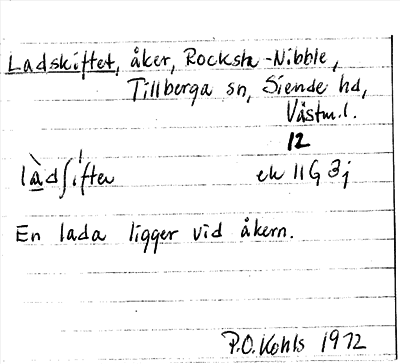 Ladskiftet, åker, Rocksta-Nibble,
Tillberga sn, Siende hd,
Västm. l.
12
làdʃìftea ek 11G 3j
En lada ligger vid åkern.
P.O. Kohls 1972